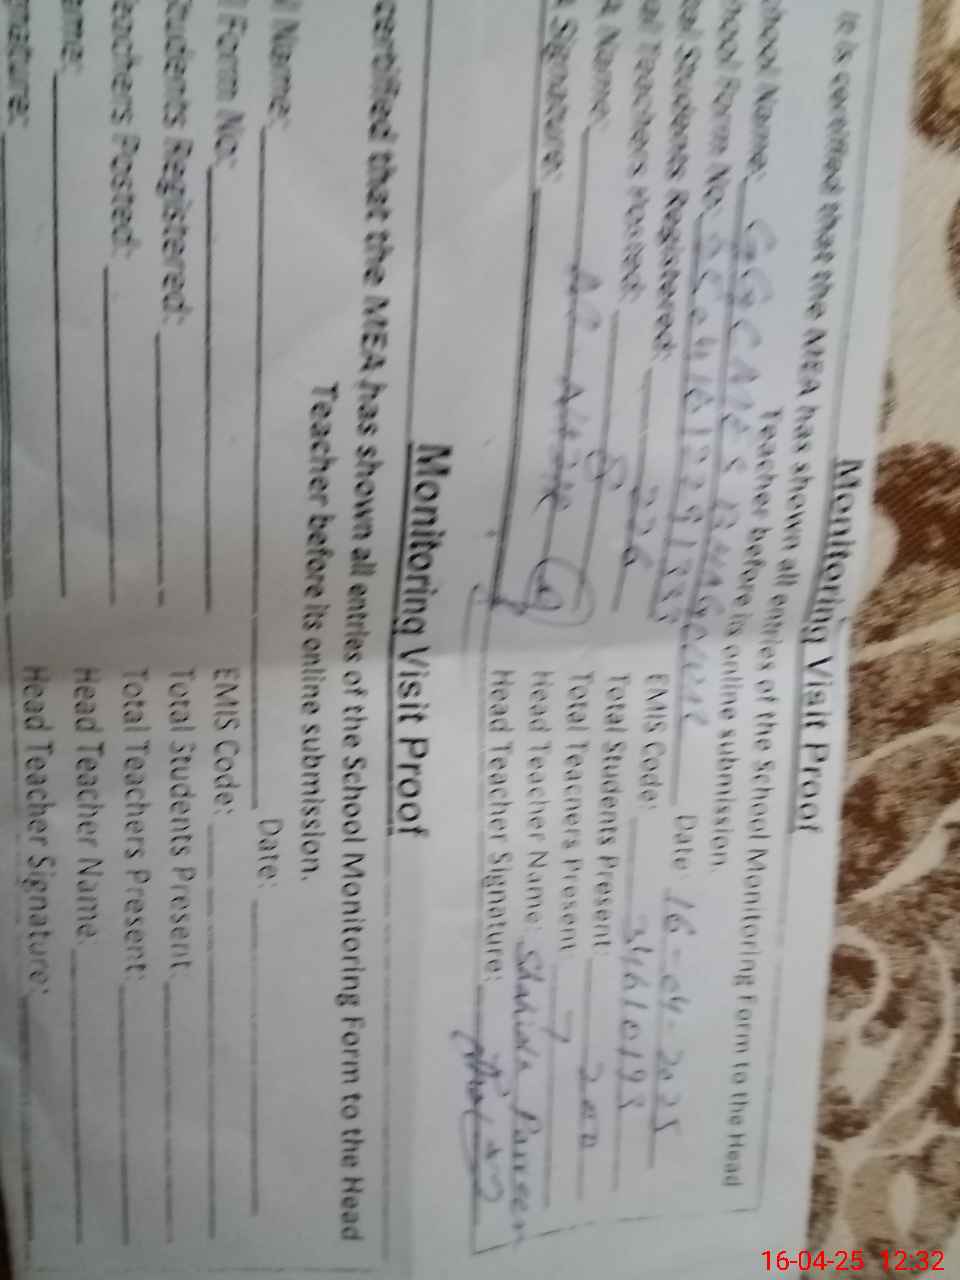 Monitoring Visit Proof
It is certified that the MEA has shown all entries of the School Monitoring Form to the Head
Teacher before its online submission.
chool Name: GGCMES Date: 16-04-2025
hool Form No: EMIS Code:
tal Students Registered: 226 Total Students Present: 200
al Teachers Posted: 8 Total Teachers Present: 7
A Name: Head Teacher Name: Shahida Parveen
A Signature: Head Teacher Signature:
Monitoring Visit Proof
certified that the MEA has shown all entries of the School Monitoring Form to the Head
Teacher before its online submission.
l Name: Date:
l Form No: EMIS Code:
Students Registered: Total Students Present
eachers Posted: Total Teachers Present:
ame: Head Teacher Name.
gnature: Head Teacher Signature:
16-04-25 12:32